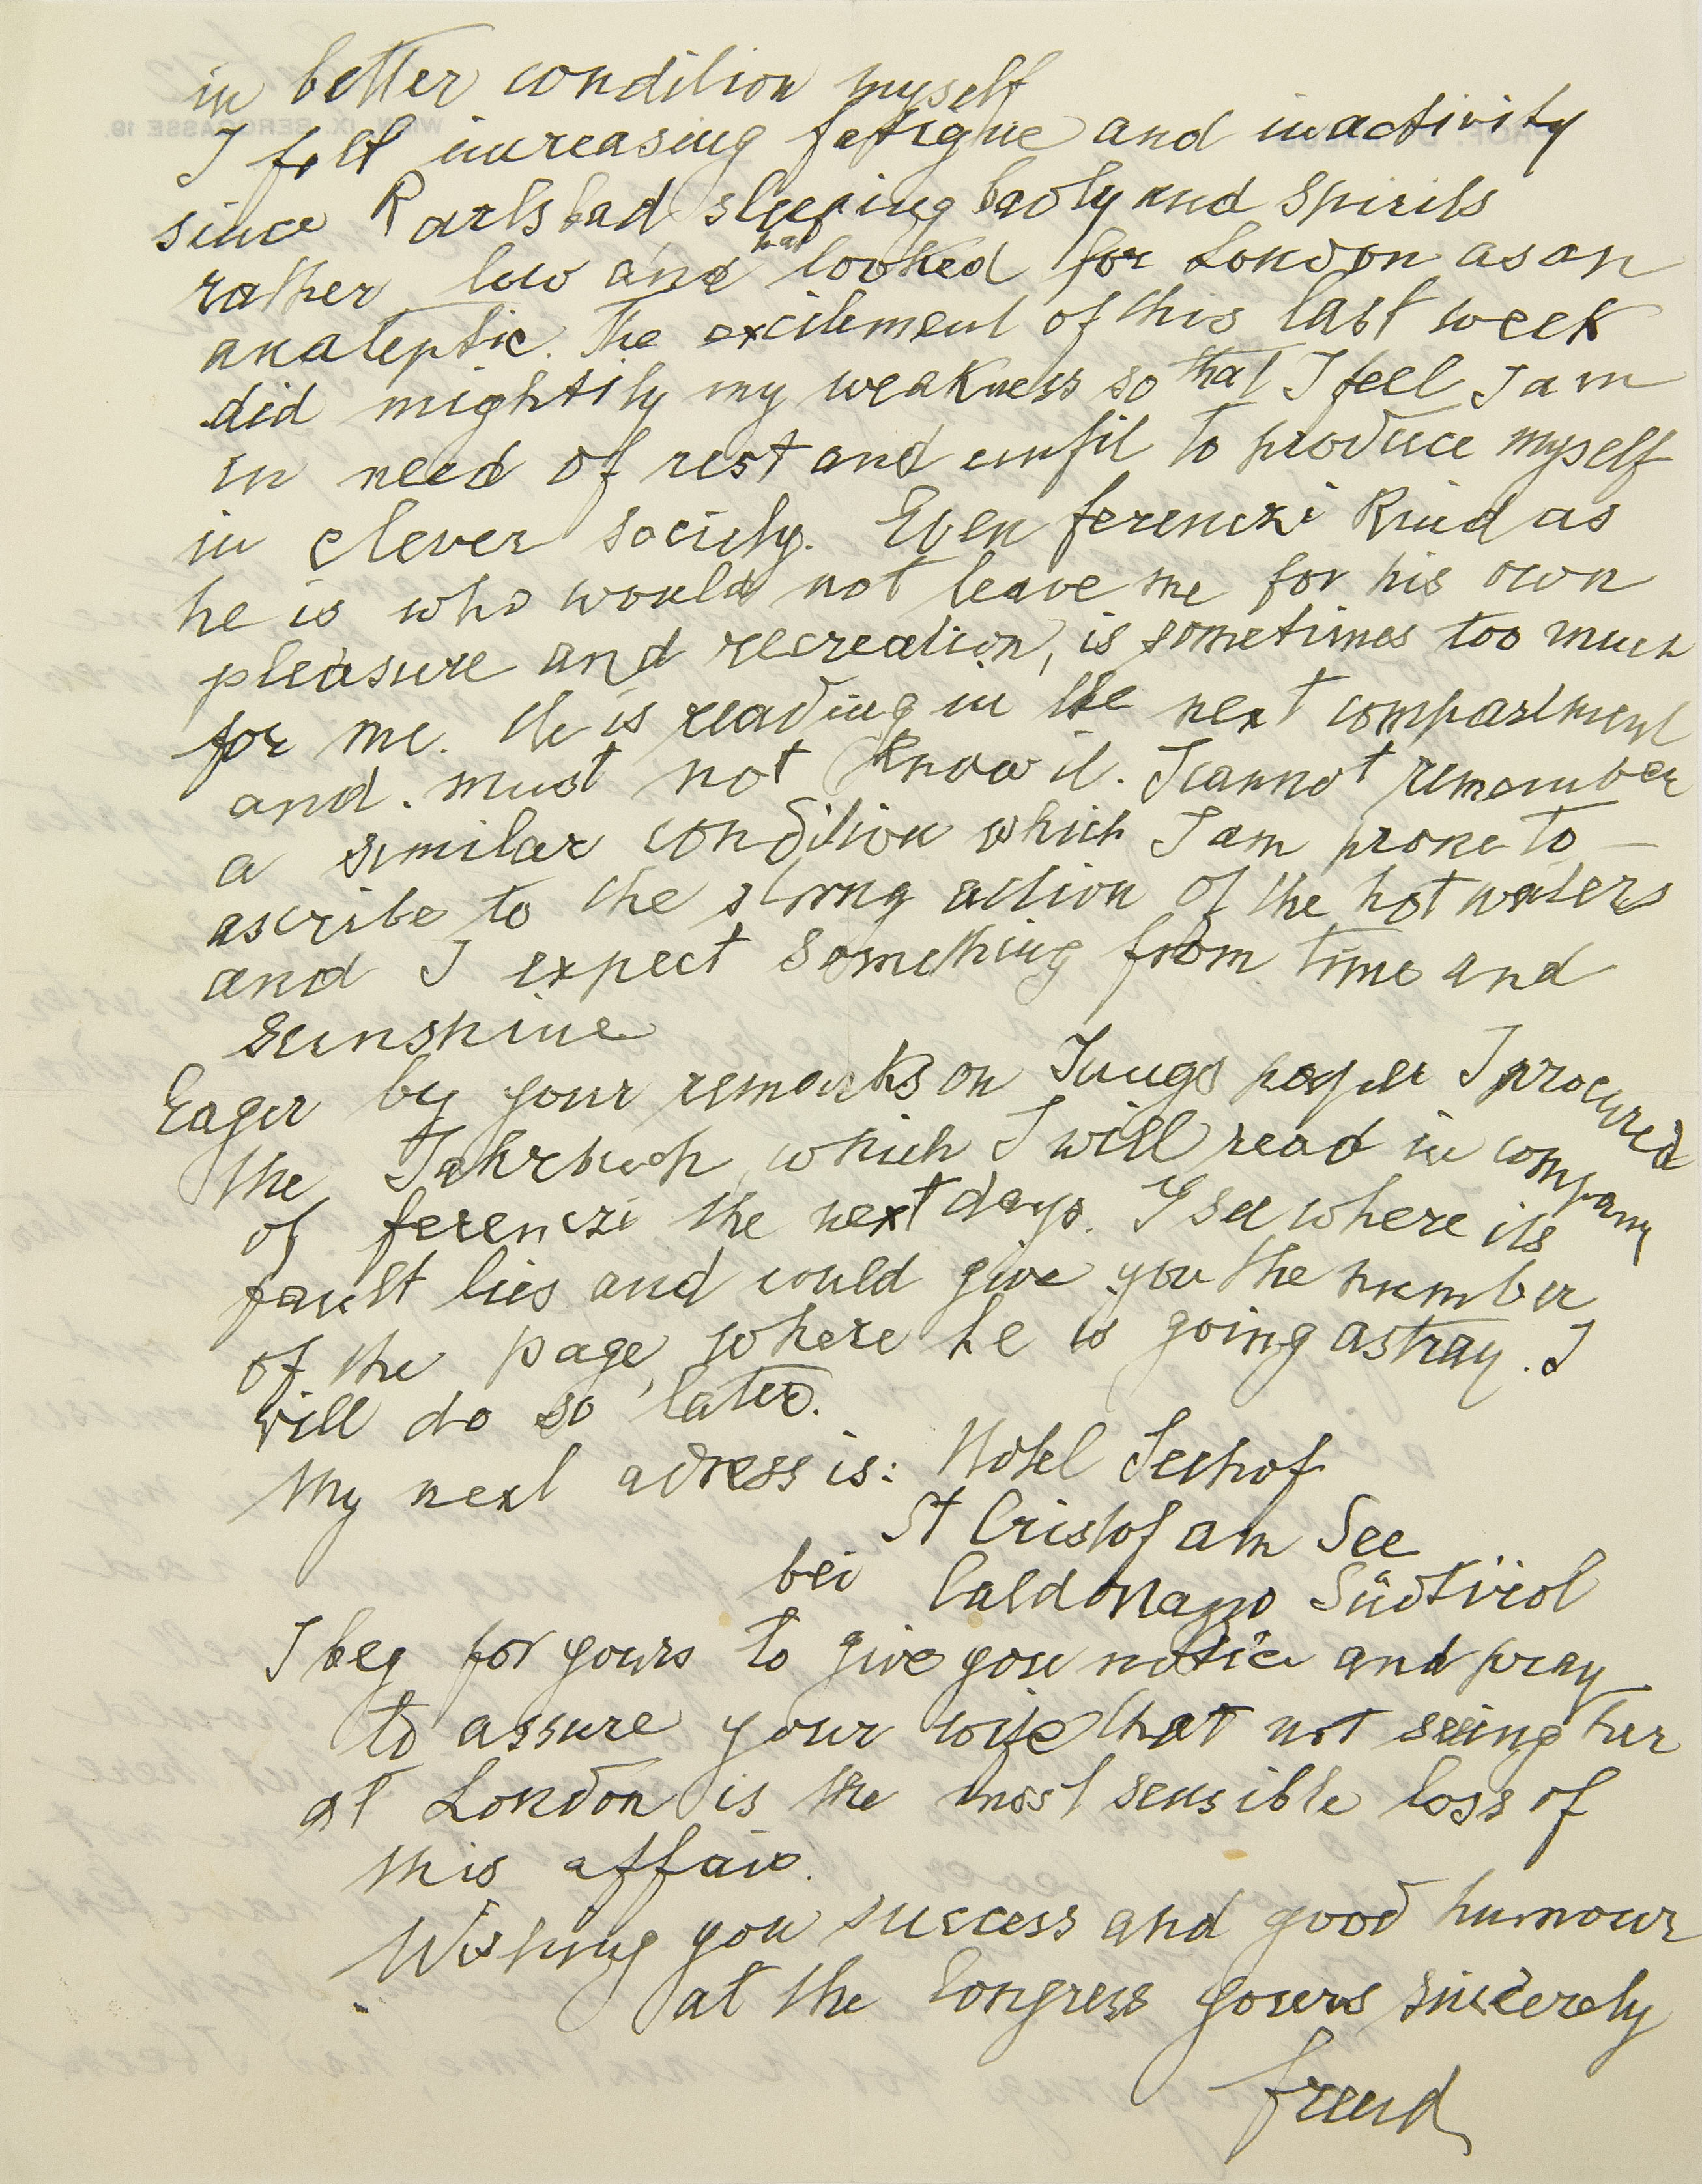 in better condition myself
I felt increasing fatigue and inactivity
since Karlsbad sleeping badly and spirits
rather low and had looked for London as an
analeptic. The excitement of this last week
did mightily my weakness so that I feel I am
in need of rest and unfit to produce myself
in clever society. Even ferenczi kind as
he is who would not leave me for his own
pleasure and recreation, is sometimes too much
for me. He is reading in the next compartment
and must not know it. I cannot remember
a similar condition which I am prone to
ascribe to the strong action of the hot waters
and I expect something from time and
sunshine
Eager by your remarks on Jungs paper I procured
the Jahrbuch, which I will read in company
of ferenczi the next days. I see where its
fault lies and could give you the number
of the page, where he is going astray. I
will do so later.
My next adress is: Hotel Seehof
St Cristof am See
bei Caldonazzo Südtirol
I beg for yours to give you notice and pray
to assure your wife that not seeing her
at London is the most sensible loss of
this affair.
Wishing you success and good humour
at the Congress yours sincerely
freud